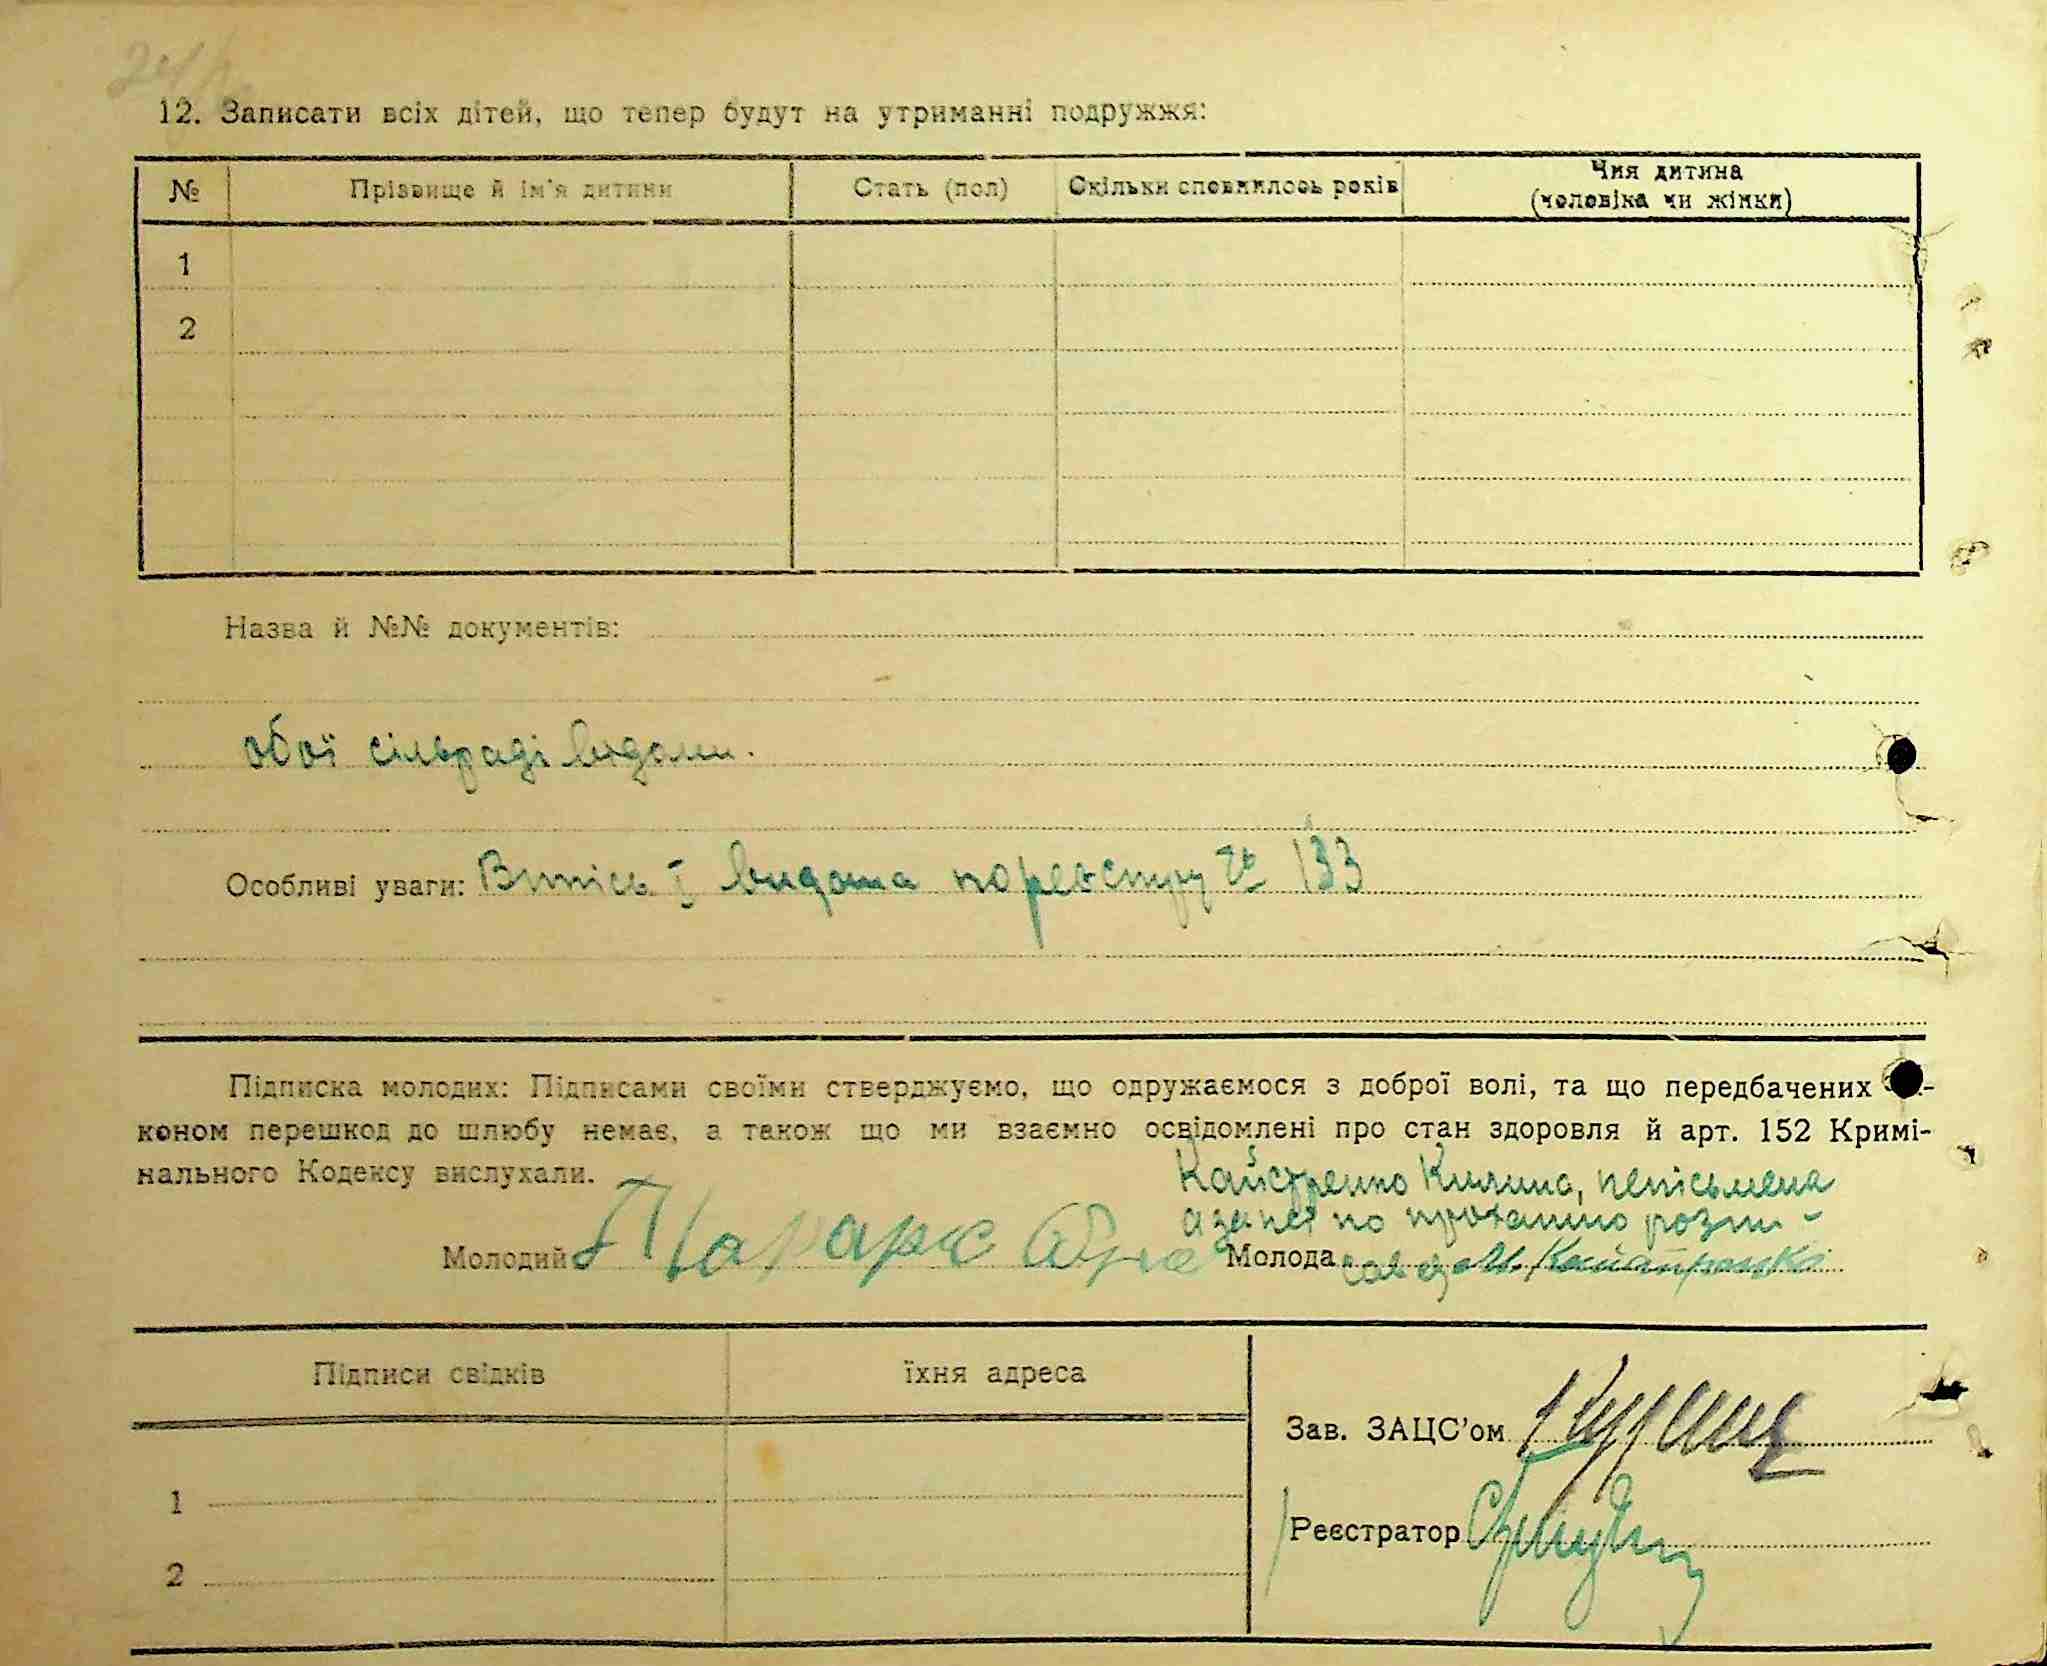 12. Записати всіх дітей, що тепер будут на утриманні подружжя:
№ Прізвище й ім'я дитини Стать (пол) Скільки сповнилось років Чия дитина (чоловіка чи жінки)
1
2
Назва й №№ документів:
обої сільраді видоми.
Особливі уваги: Випісь I видана по реєстру № 133
Підписка молодих: Підписами своїми стверджуємо, що одружаємося з доброї волі, та що передбачених
коном перешкод до шлюбу немає, а також що ми взаємно освідомлені про стан здоровля й арт. 152 Кримі-
нального Кодексу вислухали.
Килина, неписьмена
а за неї по проханню розпи-
Молодий Молода
Підписи свідків їхня адреса
Зав. ЗАЦС'ом
1
Реєстратор
2